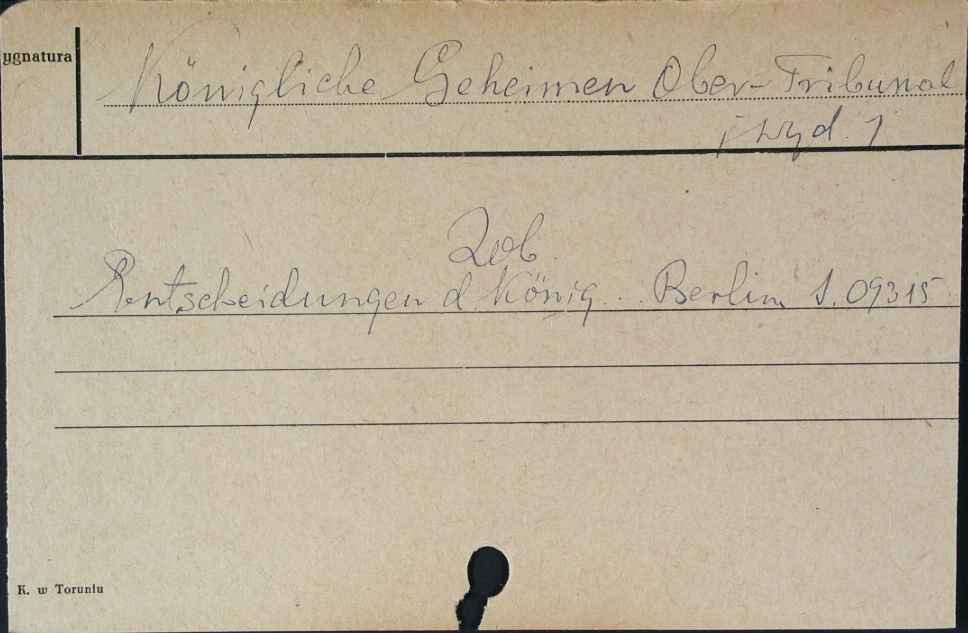 ygnatura
Königliche Geheimen Ober-Tribunal
[wyd.]
Zob.
Entscheidungen d. König... Berlin S. 09315
K. w Toruniu